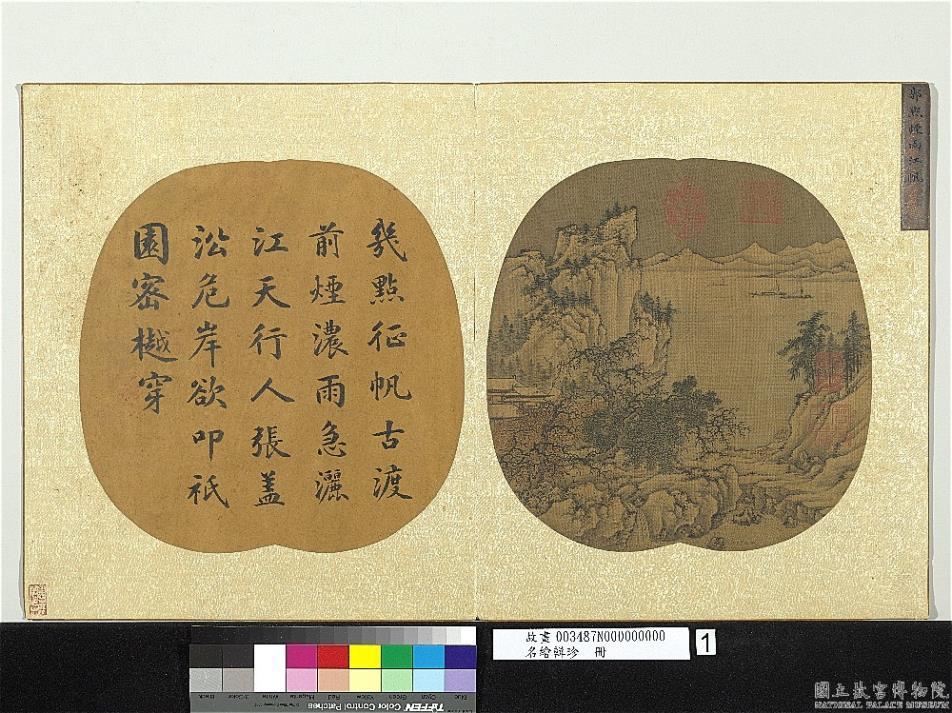 郭熙煙雨江帆
幾點征帆古渡
前煙濃雨急灑
江天行人張蓋
㳂危岸欲叩祇
園密樾穿
故畫 003487N000000000
名繪輯珍 冊
1
TIFFEN Color Control Patches
Blue Cyan Green Yellow Red Magenta White 3/Color Black
國立故宮博物院
NATIONAL PALACE MUSEUM